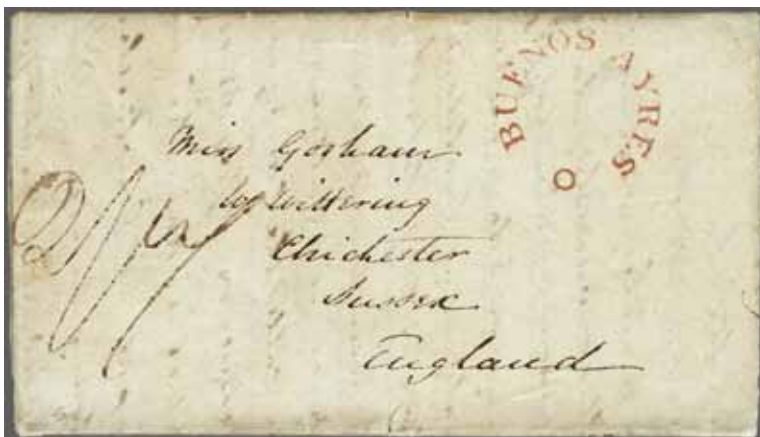 BUENOS AYRES
Miss Gorham
W. Wittering
Chichester
Sussex
England